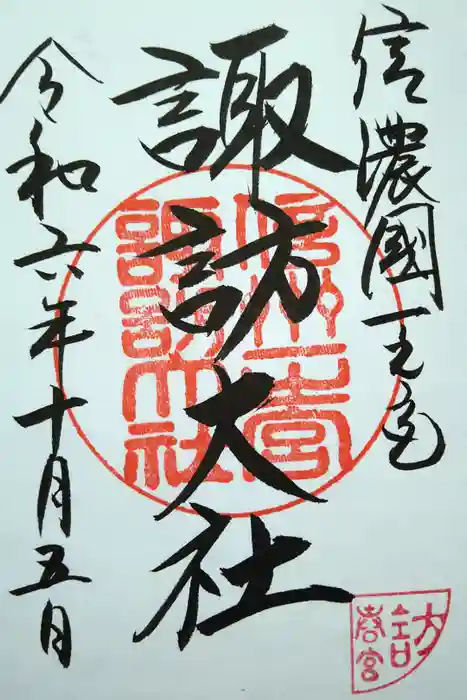 信濃國一之宮
諏訪大社
令和六年十月五日
信州一宮
諏訪大社
春宮